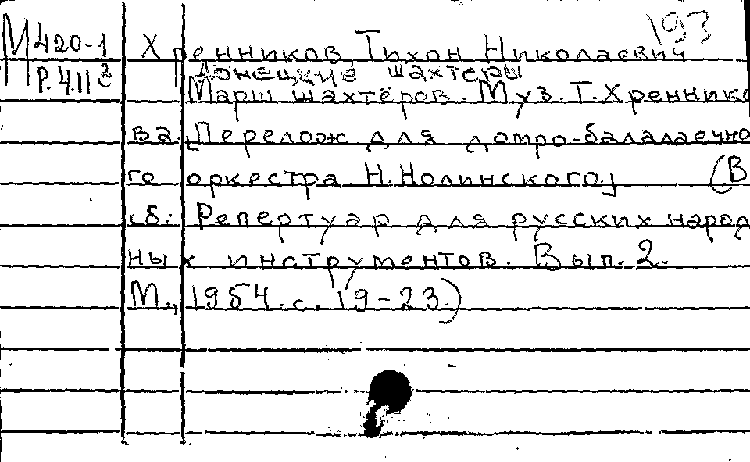 193
М420-1 Хренников Тихон Николаевич
Р.411 Донецкие шахтеры
Марш шахтёров. Муз. Т. Хреннико
ва. [Перелож для домро-балалаечно
го оркестра Н. Нолинского] (В
сб: Репертуар для русских народ
ных инструментов. Вып. 2.
М., 1954. с. 19-23)